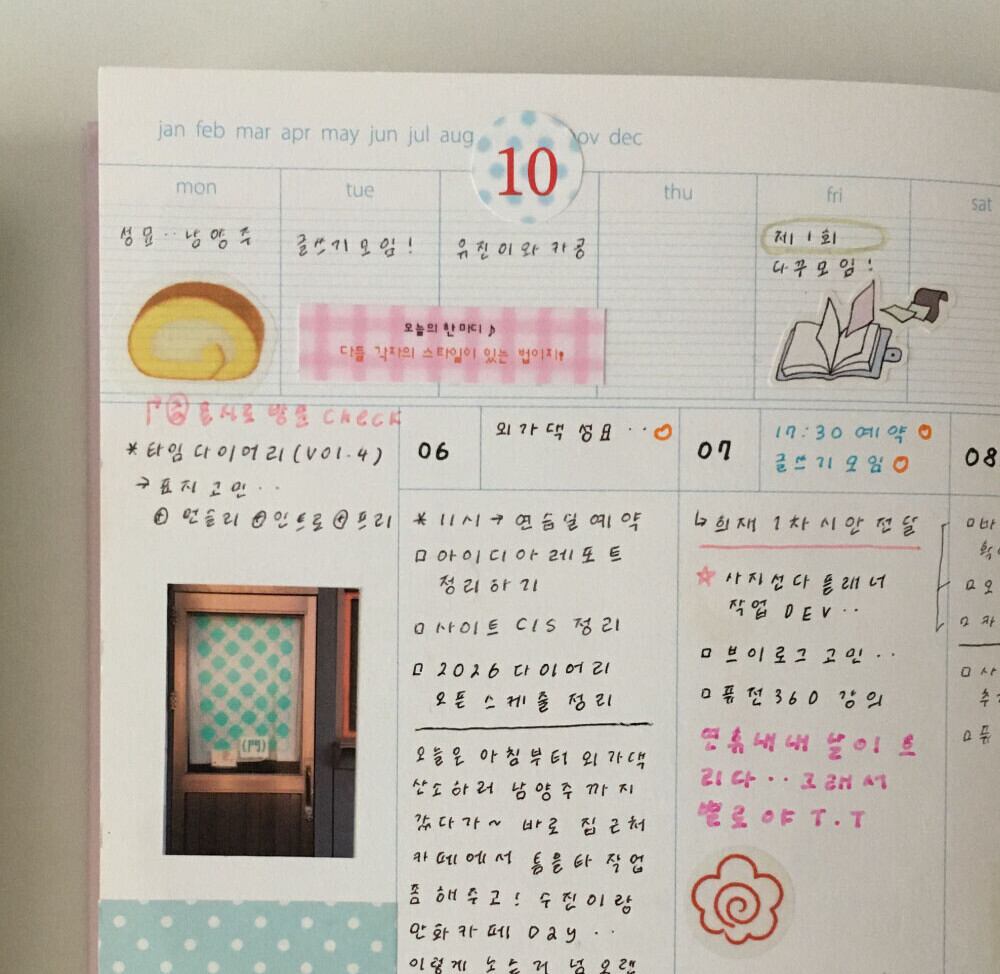 jan feb mar apr may jun jul aug
10
ov dec
mon
tue
thu
fri
sat
성묘··남양주
글쓰기모임!
유진이와 카공
제1회
다꾸모임!
오늘의 한마디♪
다들 각자의 스타일이 있는 법이지!
방문 CHECK
*타임다이어리(VOl.4)
→표지고민··
⊕먼슬리⊕인트로⊕프리
06
외가댁 성묘··
*11시→연습실예약
□아이디아레포트
정리하기
□사이트 CIS 정리
□2026다이어리
오픈 스케줄 정리
오늘은 아침부터 외가댁
산소하러 남양주까지
갔다가~ 바로 집근처
카페에서 틈을타 작업
좀 해주고! 수진이랑
만화카페 Day··
이렇게 노는거 넘 오랜
07
17:30 예약
글쓰기모임
↳희재 1차시안전달
☆사지선다플래너
작업 DEV··
□브이로그 고민··
□퓨전360 강의
연휴내내 날이 흐
리다·· 그래서
별로야 T.T
(門)
08
□바
□오
□카
□사
□퓨